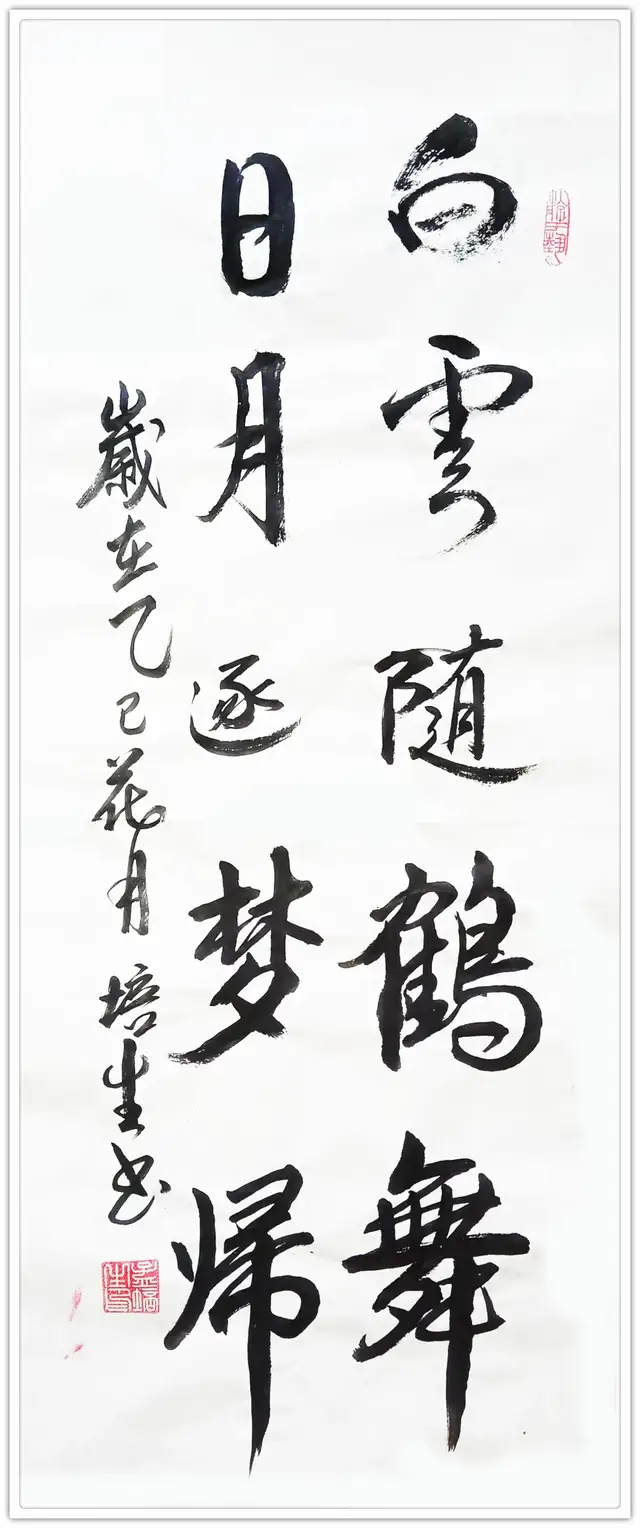 白雲随鶴舞
日月逐梦帰
歲在乙巳花月培生书